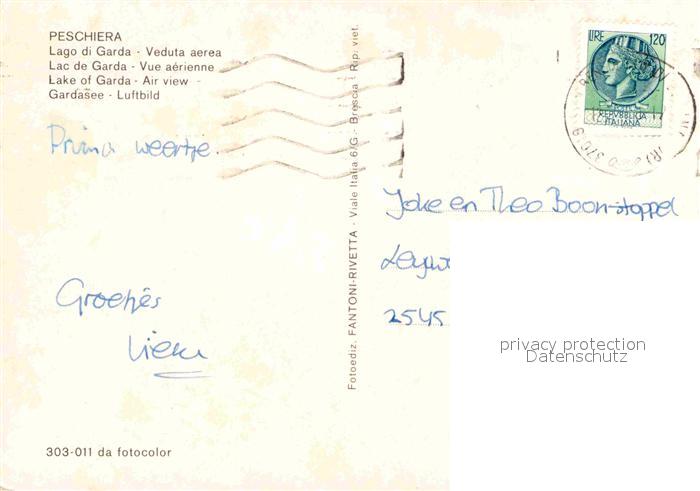 PESCHIERA
Lago di Garda - Veduta aerea
Lac de Garda - Vue aérienne
Lake of Garda - Air view
Gardasee - Luftbild
Prima weertje
Groetjes
303-011 da fotocolor
Fotoediz. FANTONI-RIVETTA - Viale Italia 6/G - Brescia - Rip. viet.
LIRE 120
POSTE
REPVBBLICA
ITALIANA
Joke en Theo Boon-stoppel
2545
privacy protection
Datenschutz